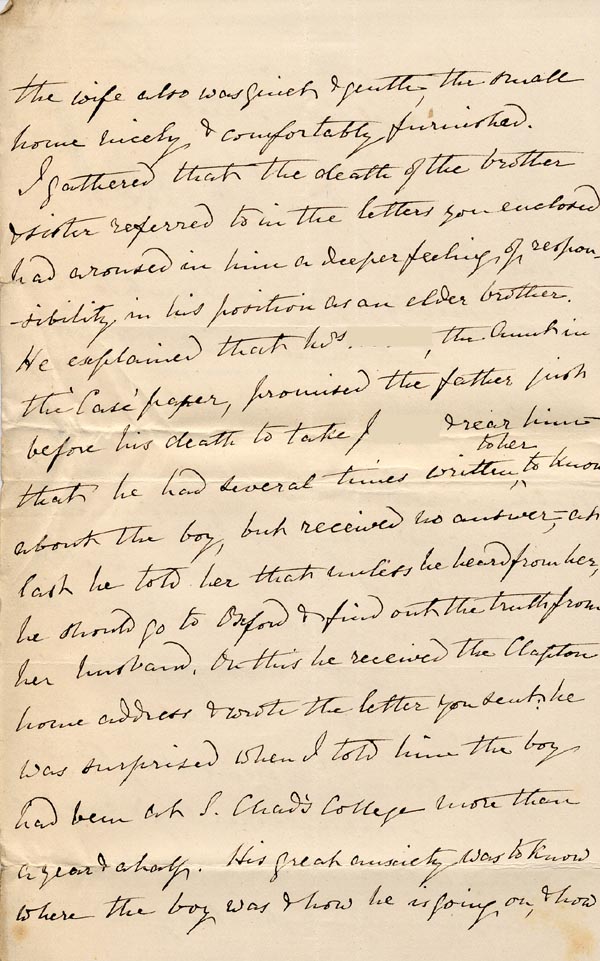 the wife also was quiet & gentle, the small
home nicely & comfortably furnished.
I gathered that the death of the brother
& sister referred to in the letters you enclosed
had aroused in him a deeper feeling of respon-
-sibility in his position as an elder brother.
He explained that Mrs. , the Aunt in
the 'Case' paper, promised the father just
before his death to take J & rear him -
that he had several times written to her to know
about the boy, but received no answer, - at
last he told her that unless he heard from her,
he should go to Oxford & find out the truth from
her husband. On this he received the Clapton
home address & wrote the letter you sent: he
was surprised when I told him the boy
had been at S. Chad's College more than
a year & a half. His great anxiety was to know
where the boy was & how he is going on, & how